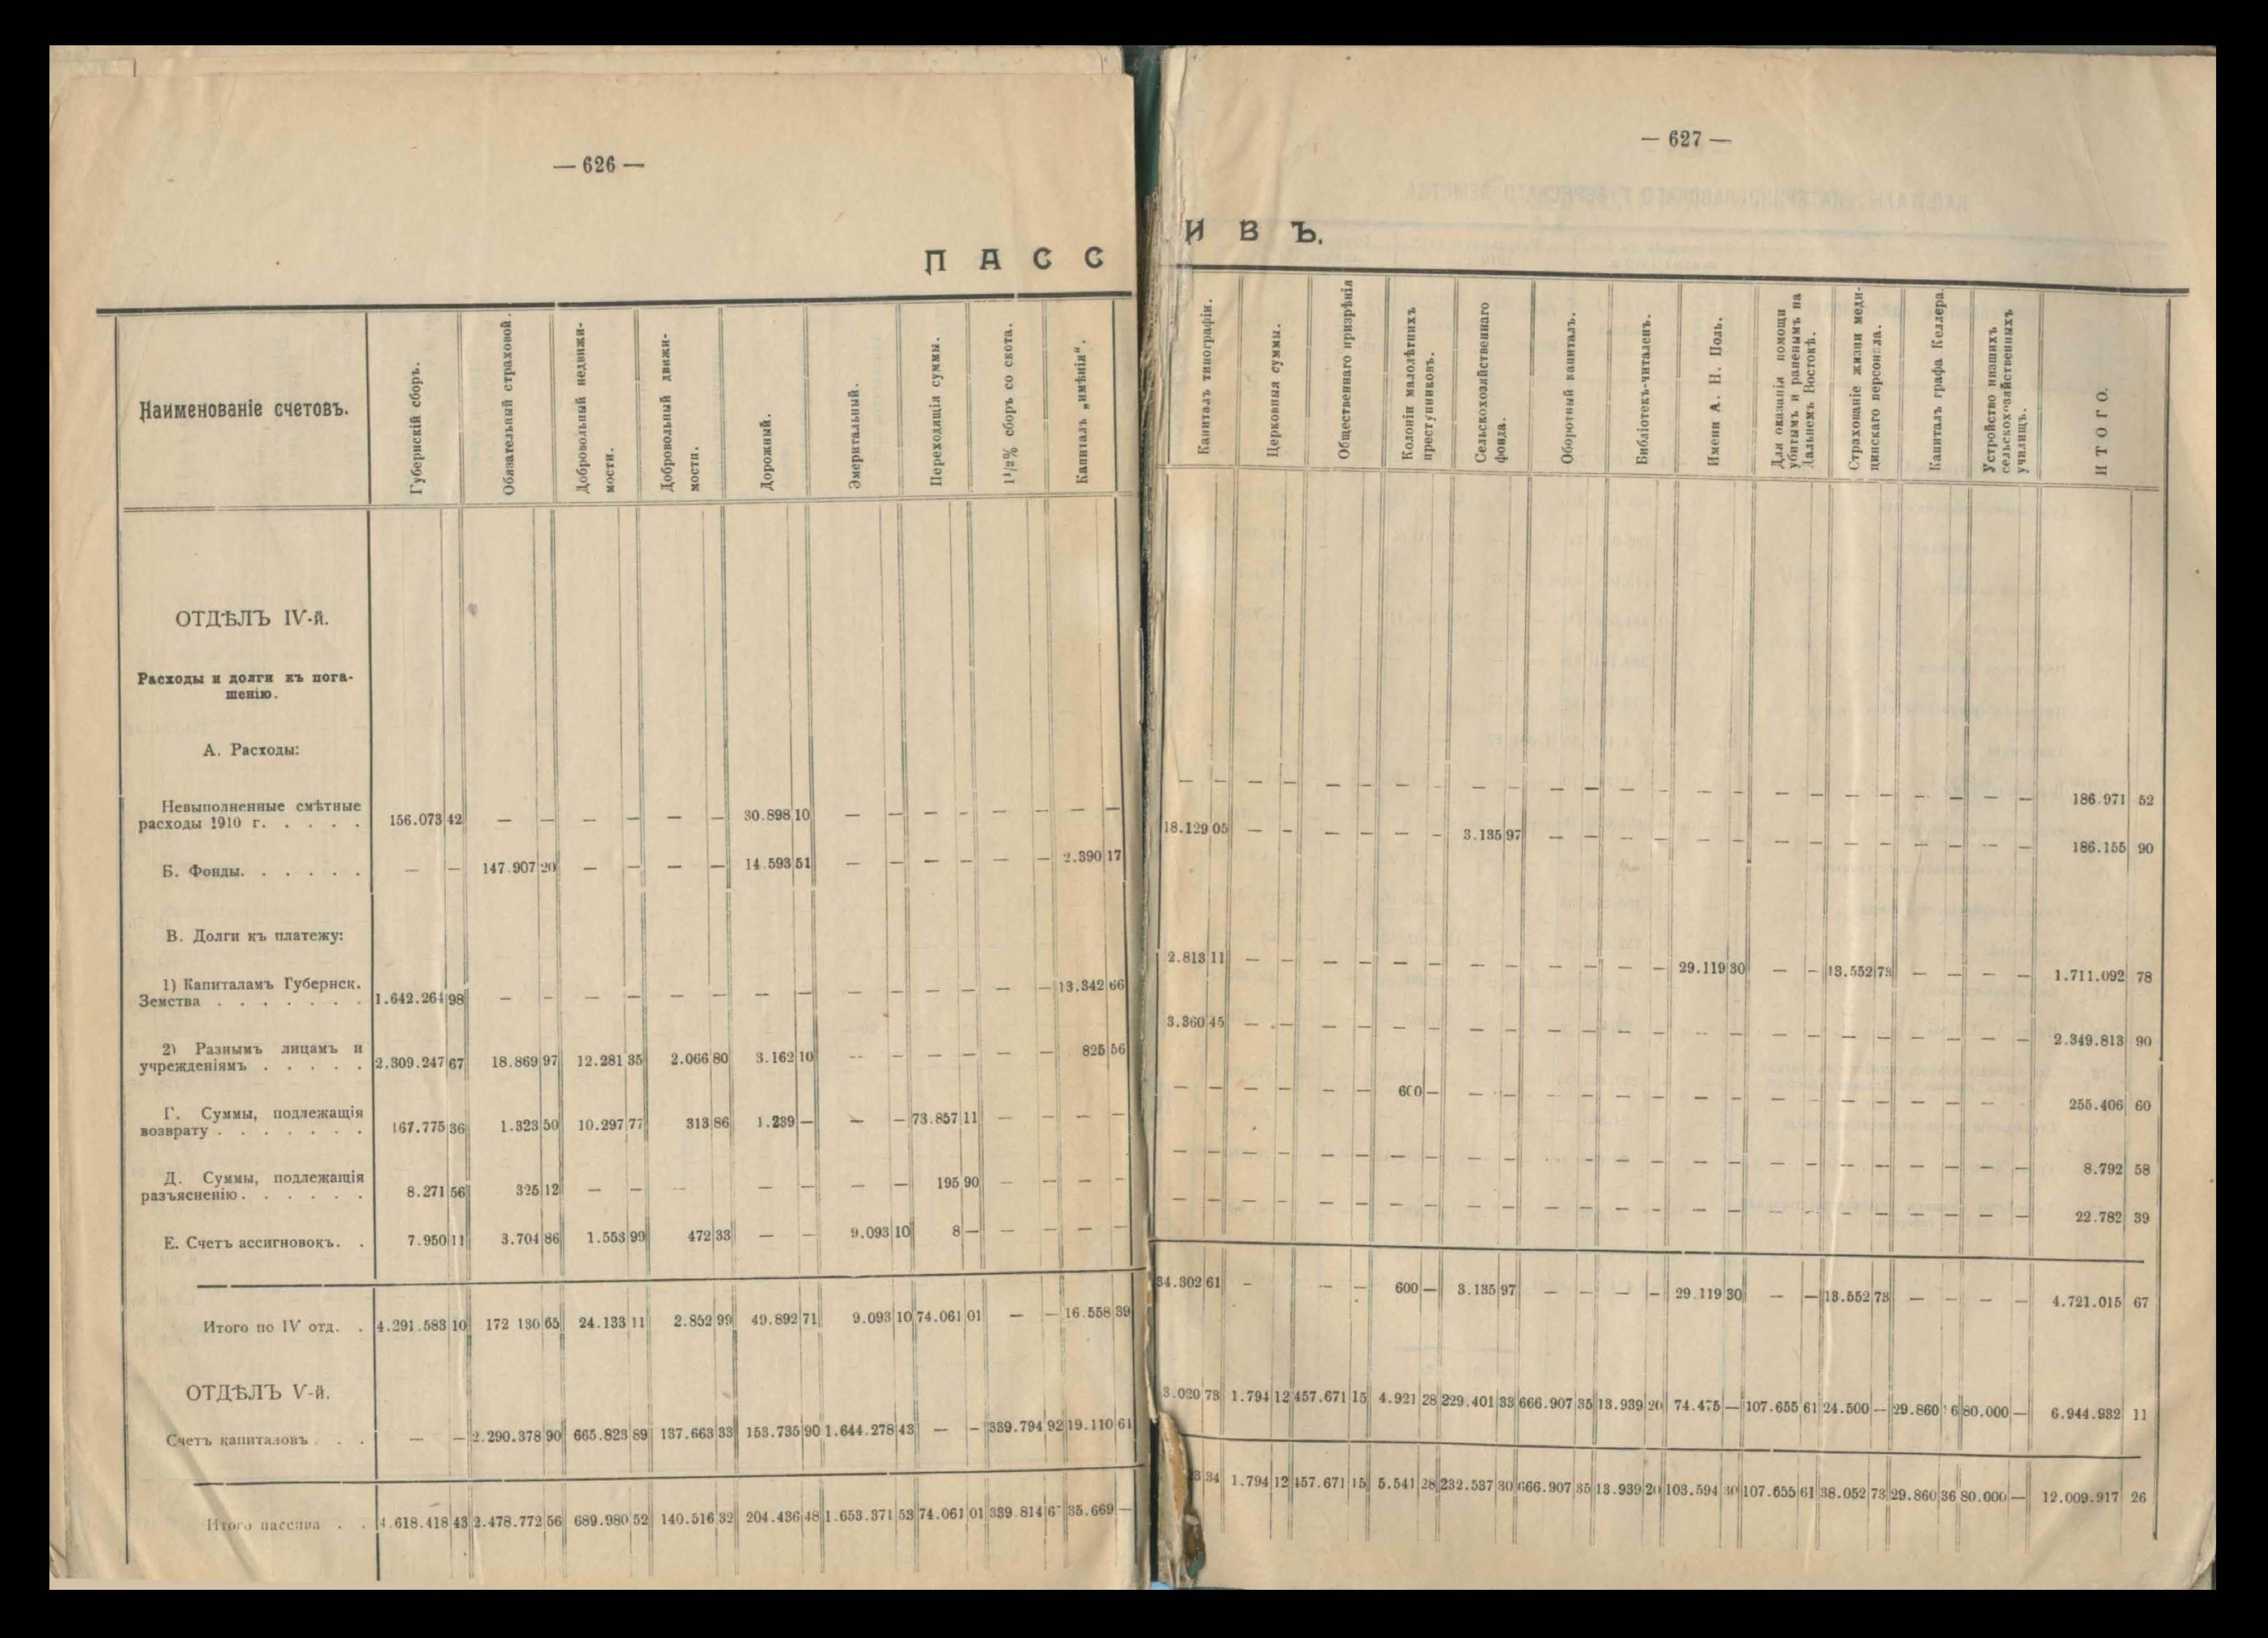 — 626 —
— 627 —
ПАСС
ИВЪ.
Наименованіе счетовъ.
Губернскій сборъ.
Обязательный страховой.
Добровольный недвижи-
мости.
Добровольный движи-
мости.
Дорожный.
Эмеритальный.
Переходящія суммы.
1½% сборъ со скота.
Капиталъ „имѣнія“.
Капиталъ типографіи.
Церковныя суммы.
Общественнаго призрѣнія
Колоніи малолѣтнихъ
преступниковъ.
Сельскохозяйственнаго
фонда.
Оборотный капиталъ.
Библіотекъ-читаленъ.
Имени А. Н. Поль.
Для оказанія помощи
убитымъ и раненымъ на
Дальнемъ Востокѣ.
Страхованіе жизни меди-
цинскаго персонала.
Капиталъ графа Келлера.
Устройство низшихъ
сельскохозяйственныхъ
училищъ.
ИТОГО.
ОТДѢЛЪ IV-й.
Расходы и долги къ пога-
шенію.
А. Расходы:
Невыполненные смѣтные
расходы 1910 г. . . . . 156.073 42 — — — — — — 30.898 10 — — — — — — — — — — — — — — — — — — — — — — — — — — — — — — — — 186.971 52
Б. Фонды. . . . . . — — 147.907 20 — — — — 14.593 51 — — — — — — 2.390 17 18.129 05 — — — — — — 3.135 97 — — — — — — — — — — — — — — 186.155 90
В. Долги къ платежу:
1) Капиталамъ Губернск.
Земства . . . . . . . 1.642.264 98 — — — — — — — — — — — — — — 13.342 66 2.813 11 — — — — — — — — — — — — 29.119 30 — — 13.552 73 — — — — 1.711.092 78
2) Разнымъ лицамъ и
учрежденіямъ . . . . . 2.309.247 67 18.869 97 12.281 35 2.066 80 3.162 10 — — — — — — 825 56 3.360 45 — — — — — — — — — — — — — — — — — — — — — — 2.349.813 90
Г. Суммы, подлежащія
возврату . . . . . . . 167.775 36 1.323 50 10.297 77 313 86 1.239 — — — 73.857 11 — — — — — — — — — — 600 — — — — — — — — — — — — — — — — — 255.406 60
Д. Суммы, подлежащія
разъясненію. . . . . . 8.271 56 325 12 — — — — — — — 195 90 — — — — — — — — — — — — — — — — — — — — — — — — — — — 8.792 58
Е. Счетъ ассигновокъ. . 7.950 11 3.704 86 1.553 99 472 33 — — 9.093 10 8 — — — — — — — — — — — — — — — — — — — — — — — — — — — — — 22.782 39
Итого по IV отд. . 4.291.583 10 172 130 65 24.133 11 2.852 99 49.892 71 9.093 10 74.061 01 — — 16.558 39 34.302 61 — — — 600 — 3.135 97 — — — — 29.119 30 — — 13.552 73 — — — — 4.721.015 67
ОТДѢЛЪ V-й.
Счетъ капиталовъ . . . — — 2.290.378 90 665.823 89 137.663 33 153.735 90 1.644.278 43 — — 339.794 92 19.110 61 3.020 73 1.794 12 457.671 15 4.921 28 229.401 33 666.907 35 13.939 20 74.475 — 107.655 61 24.500 — 29.860 6 80.000 — 6.944.932 11
Итого пассива . . 4.618.418 43 2.478.772 56 689.980 52 140.516 32 204.436 48 1.653.371 53 74.061 01 339 814 35.669 — 34 1.794 12 457.671 15 5.541 28 232.537 30 666.907 35 13.939 20 103.594 30 107.655 61 38.052 73 29.860 36 80.000 — 12.009.917 26